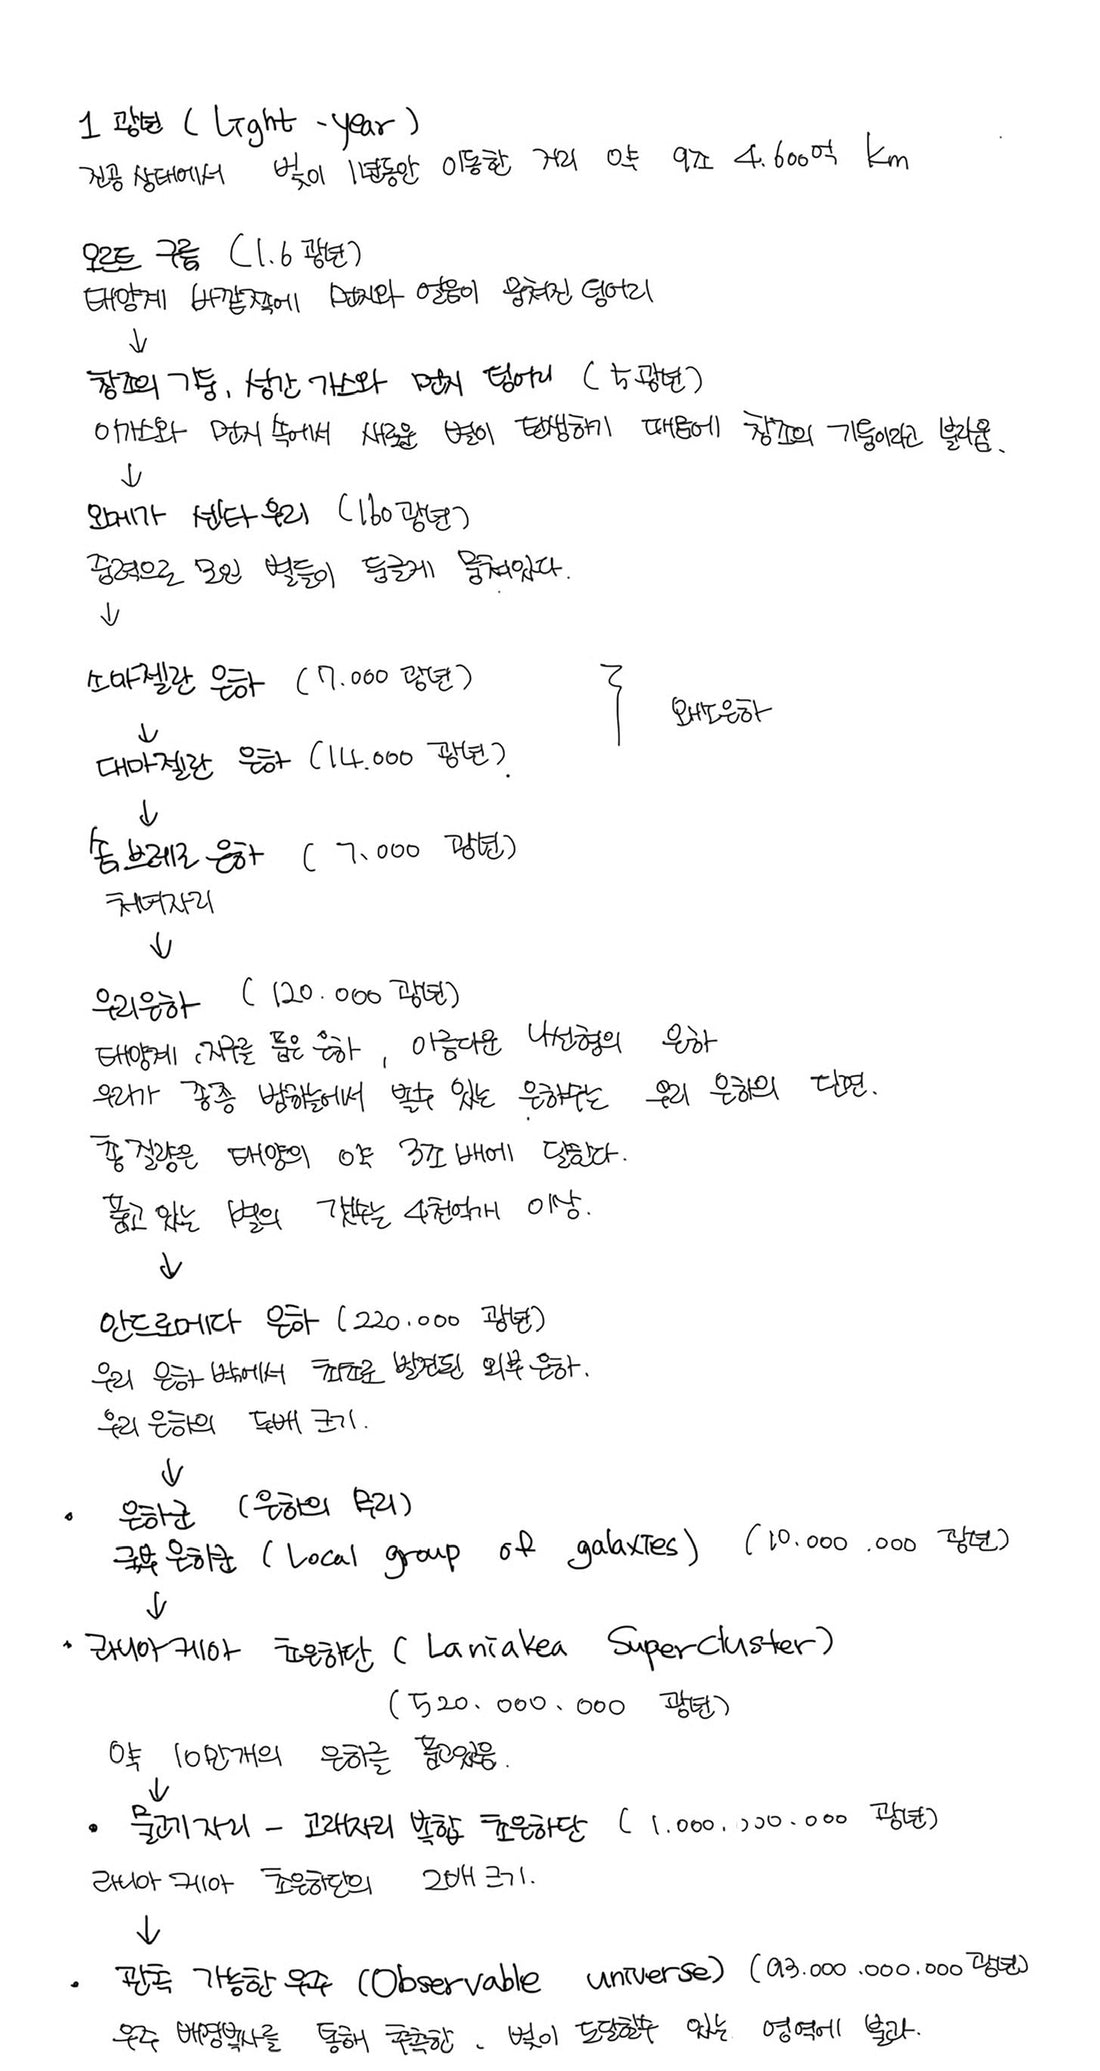 1 광년 ( Light - year )
진공 상태에서 빛이 1년동안 이동한 거리 약 9조 4.600억 km
오르트 구름 (1.6 광년)
태양계 바깥쪽에 먼지와 얼음이 뭉쳐진 덩어리
↓
창조의 기둥, 성간 가스와 먼지 덩어리 ( 5광년)
이가스와 먼지 속에서 새로운 별이 탄생하기 때문에 창조의 기둥이라고 불리움.
↓
오메가 센타우리 (160광년)
중력으로 모인 별들이 둥글게 뭉쳐있다.
↓
소마젤란 은하 (7.000 광년)
왜소은하
↓
대마젤란 은하 (14.000 광년).
↓
솜브레로 은하 ( 7.000 광년)
처녀자리
↓
우리은하 ( 120.000 광년)
태양계, 지구를 품은 은하, 아름다운 나선형의 은하
우리가 종종 밤하늘에서 볼수 있는 은하수는 우리 은하의 단면.
총 질량은 태양의 약 3조 배에 달한다.
품고 있는 별의 갯수는 4천억개 이상.
↓
안드로메다 은하 (220.000 광년)
우리 은하 밖에서 최초로 발견된 외부 은하.
우리 은하의 두배 크기.
↓
• 은하군 (은하의 무리)
국부 은하군 (Local group of galaxies) (10.000.000 광년)
↓
• 라니아케아 초은하단 ( Laniakea Supercluster)
(520.000.000 광년)
약 10만개의 은하를 품고있음.
↓
• 물고기자리 - 고래자리 복합 초은하단 ( 1.000.000.000 광년)
라니아케아 초은하단의 2배 크기.
↓
• 관측 가능한 우주 (Observable universe) (93.000.000.000광년)
우주 배경복사를 통해 추측한, 빛이 도달할수 있는 영역에 불과.